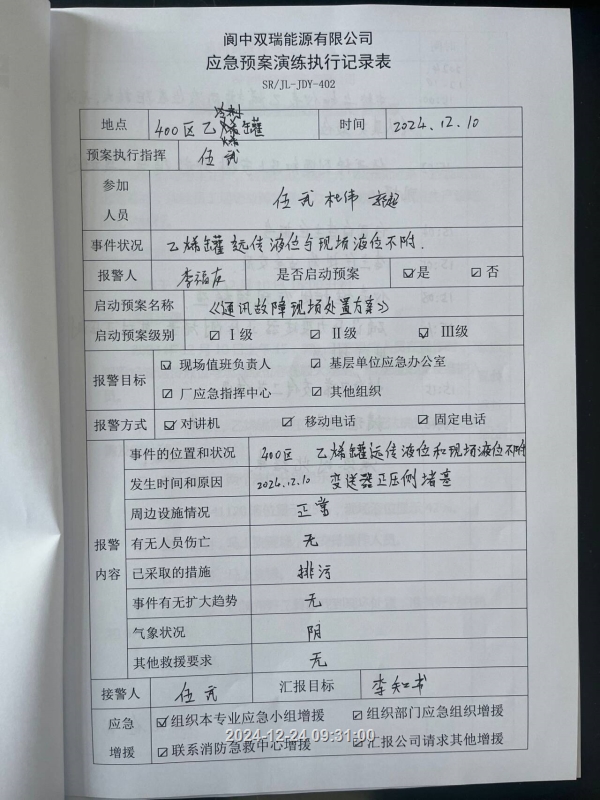 阆中双瑞能源有限公司
应急预案演练执行记录表
SR/JL-JDY-402
地点 400区乙烯罐 时间 2024.12.10
预案执行指挥 任武
参加人员 任武 杜伟
事件状况 乙烯罐远传液位与现场液位不附.
报警人 李福友 是否启动预案 ☑是 ☑否
启动预案名称 《通讯故障现场处置方案》
启动预案级别 ☑Ⅰ级 ☑Ⅱ级 ☑Ⅲ级
报警目标 ☑现场值班负责人 ☑基层单位应急办公室
☑厂应急指挥中心 ☑其他组织
报警方式 ☑对讲机 ☑移动电话 ☑固定电话
报警内容
事件的位置和状况 400区 乙烯罐远传液位和现场液位不附
发生时间和原因 2024.12.10 变送器正压侧堵塞
周边设施情况 正常
有无人员伤亡 无
已采取的措施 排污
事件有无扩大趋势 无
气象状况 阴
其他救援要求 无
接警人 任武 汇报目标 李知书
应急增援 ☑组织本专业应急小组增援 ☑组织部门应急组织增援
☑联系消防急救中心增援 ☑汇报公司请求其他增援
2024-12-24 09:31:00